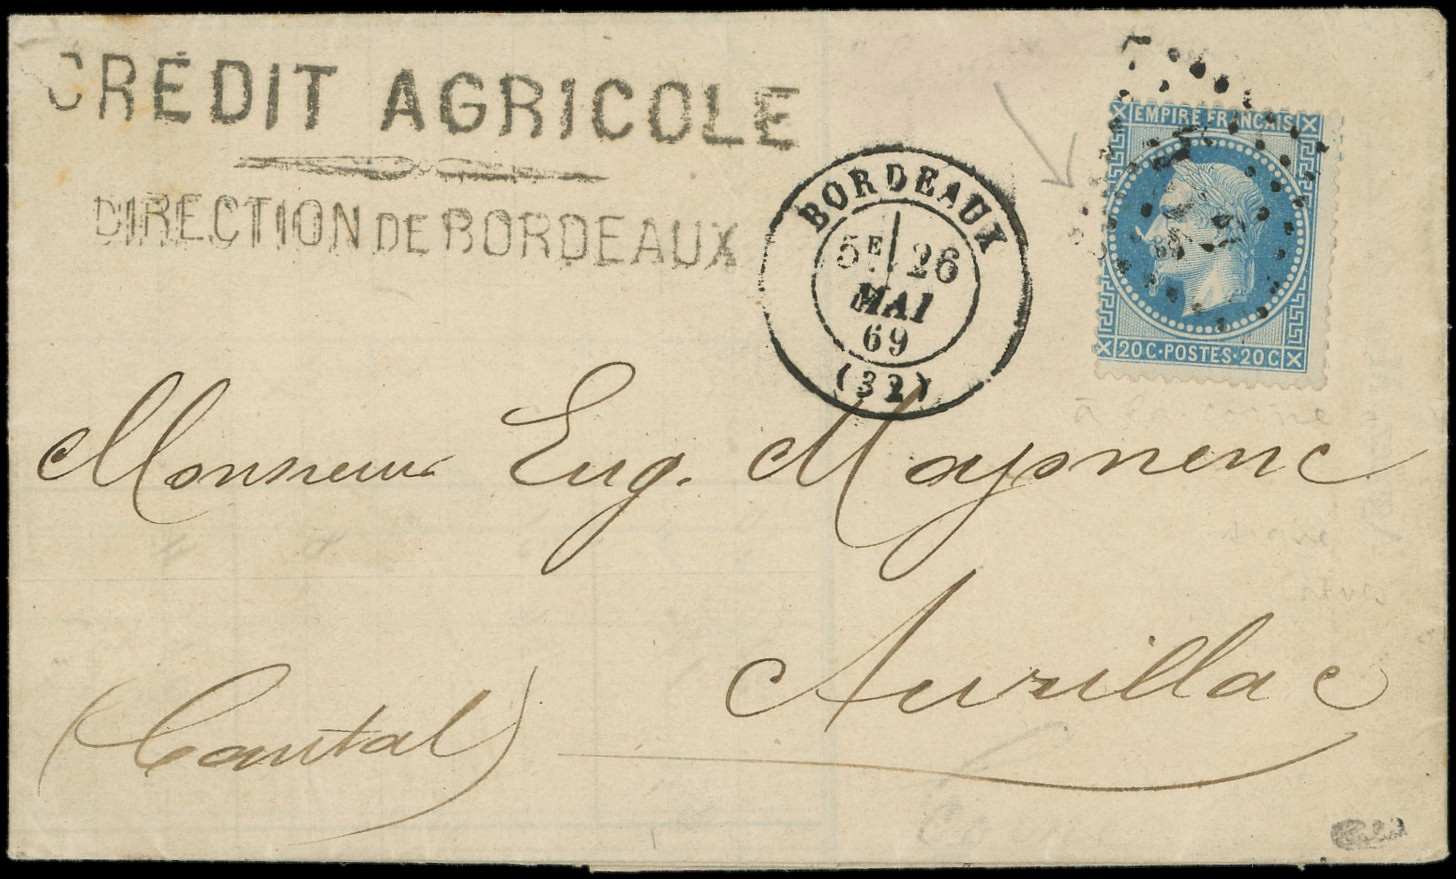 CRÉDIT AGRICOLE
DIRECTION DE BORDEAUX
BORDEAUX
5E 26
MAI
69
(32)
EMPIRE FRANCAIS
20 C · POSTES · 20 C
Monsieur Eug. Maynenc
Aurillac
(Cantal)